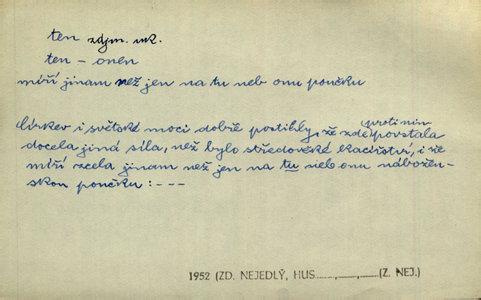 ten zájm. uk.
ten - onen
míří jinam než jen na tu neb onu poučku
Církev i světské moci dobře postihly, že zde proti nim povstala
docela jiná síla, než bylo středověké kacířství, i že
míří zcela jinam než jen na tu neb onu nábožen-
skou poučku : - - -
1952 (ZD. NEJEDLÝ, HUS....,....,....(Z. NEJ.)